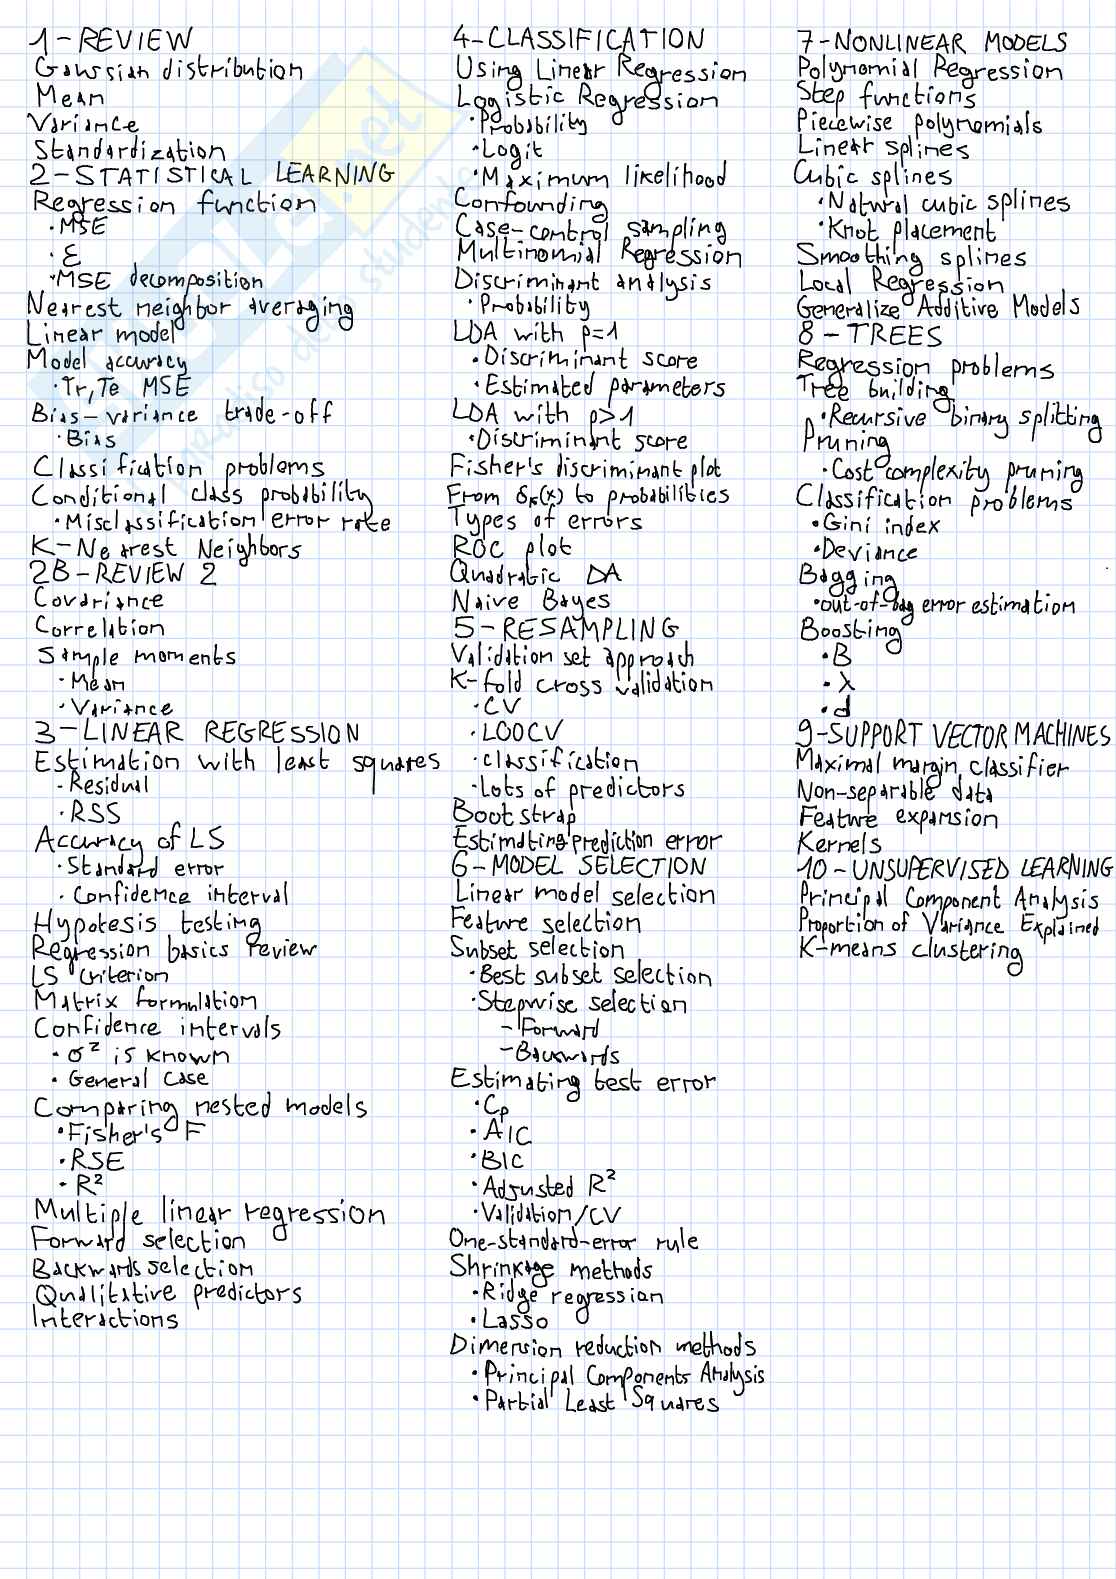 1-REVIEW
Gaussian distribution
Mean
Variance
Standardization
2-STATISTICAL LEARNING
Regression function
·MSE
·ε
·MSE decomposition
Nearest neighbor averaging
Linear model
Model accuracy
·Tr,Te MSE
Bias-variance trade-off
·Bias
Classification problems
Conditional class probability
·Misclassification error rate
K-Nearest Neighbors
2B-REVIEW 2
Covariance
Correlation
Sample moments
·Mean
·Variance
3-LINEAR REGRESSION
Estimation with least squares
·Residual
·RSS
Accuracy of LS
·Standard error
·Confidence interval
Hypotesis testing
Regression basics review
LS criterion
Matrix formulation
Confidence intervals
·σ² is known
·General case
Comparing nested models
·Fisher's F
·RSE
·R²
Multiple linear regression
Forward selection
Backwards selection
Qualitative predictors
Interactions
4-CLASSIFICATION
Using Linear Regression
Logistic Regression
·Probability
·Logit
·Maximum likelihood
Confounding
Case-control sampling
Multinomial Regression
Discriminant analysis
·Probability
LDA with p=1
·Discriminant score
·Estimated parameters
LDA with p>1
·Discriminant score
Fisher's discriminant plot
From δₖ(x) to probabilities
Types of errors
ROC plot
Quadratic DA
Naive Bayes
5-RESAMPLING
Validation set approach
K-fold cross validation
·CV
·LOOCV
·classification
·Lots of predictors
Bootstrap
Estimating prediction error
6-MODEL SELECTION
Linear model selection
Feature selection
Subset selection
·Best subset selection
·Stepwise selection
-Forward
-Backwards
Estimating test error
·Cp
·AIC
·BIC
·Adjusted R²
·Validation/CV
One-standard-error rule
Shrinkage methods
·Ridge regression
·Lasso
Dimension reduction methods
·Principal Components Analysis
·Partial Least Squares
7-NONLINEAR MODELS
Polynomial Regression
Step functions
Piecewise polynomials
Linear splines
Cubic splines
·Natural cubic splines
·Knot placement
Smoothing splines
Local Regression
Generalize Additive Models
8-TREES
Regression problems
Tree building
·Recursive binary splitting
Pruning
·Cost complexity pruning
Classification problems
·Gini index
·Deviance
Bagging
·out-of-bag error estimation
Boosting
·B
·λ
·d
9-SUPPORT VECTOR MACHINES
Maximal margin classifier
Non-separable data
Feature expansion
Kernels
10-UNSUPERVISED LEARNING
Principal Component Analysis
Proportion of Variance Explained
K-means clustering